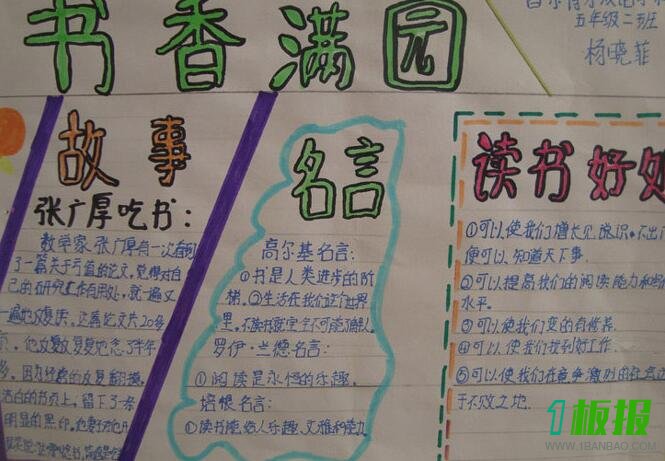 书香满园
五年级二班
杨晓菲
故事
张广厚吃书:
数学家张广厚有一次看到
了一篇关于亏值的论文,觉得对自
己的研究工作有用处,就一遍又
一遍地反复读。这篇论文共20多
页,他反反复复地念了半年
多。因为经常的反复翻摸,
洁白的书页上,留下了一条
明显的黑印。他妻子对他开
名言
高尔基名言:
①书是人类进步的阶
梯。②生活在我们这个世界
里,不读书就完全不可能了解人。
罗伊·兰德名言:
①阅读是永恒的乐趣。
培根名言:
①读书能给人乐趣、文雅和能力。
读书好处
①可以使我们增长见识。不出门
便可以知道天下事。
②可以提高我们的阅读能力和
水平。
③可以使我们变的有修养.
④可以使我们找到好工作.
⑤可以使我们在竞争激烈的社会立
于不败之地.
1板报
WWW.1BANBAO.COM